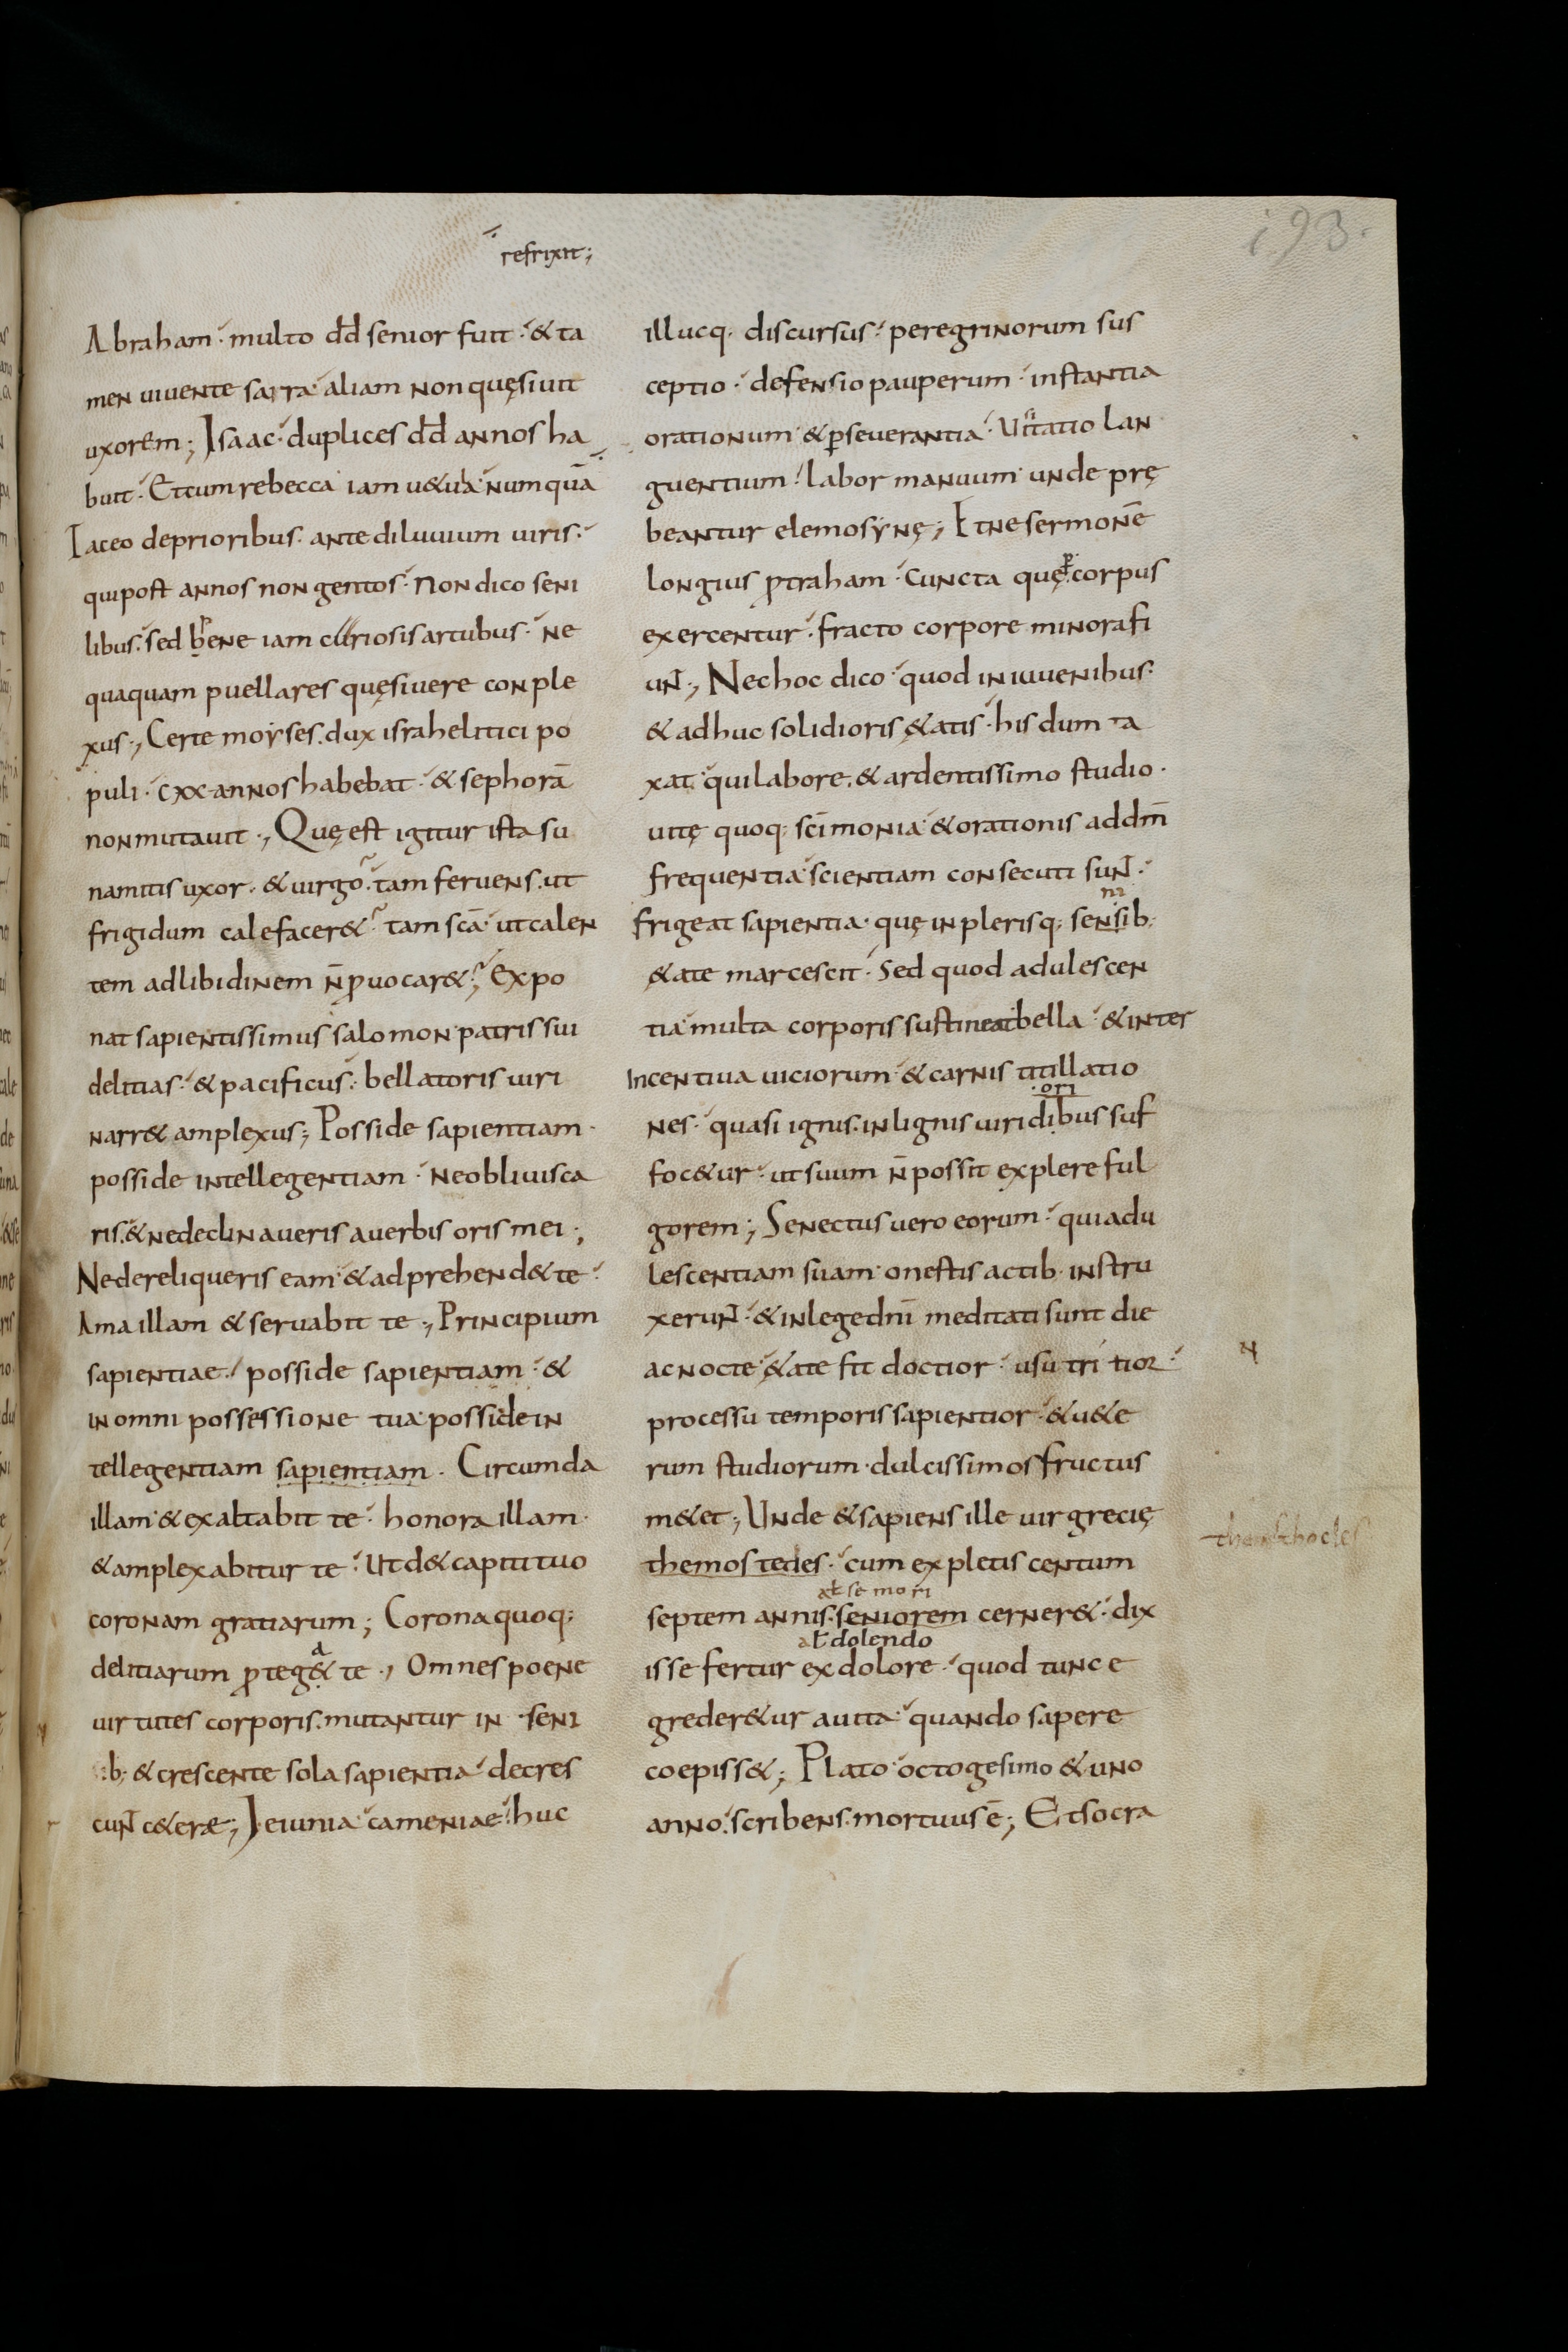 193.
refrixit;
Abraham · multo dd̄ senior fuit · & ta
men uiuente sarra · aliam non quęsiuit
uxorem; Isaac · duplices dd̄ annos ha
buit · Et cum rebecca iam uetula numquā
Taceo deprioribus · ante diluuium uiris ·
qui post annos nongentos · Non dico seni
libus · sed pene iam cariosis artubus · ne
quaquam puellares quęsiuere conple
xus ·, Certe moyses · dux israhelitici po
puli · cxx · annos habebat · & sephorā
non mutauit ·, Quę est igitur ista su
namitis uxor · & uirgo · tam feruens · ut
frigidum calefacer& · tam scā · ut calen
tem ad libidinem n̄ ꝓuocar& ·; Expo
nat sapientissimus salomon patris sui
delitias · & pacificus · bellatoris uiri
narr& amplexus; Posside sapientiam ·
posside intellegentiam · Ne obliuisca
ris · & ne declinaueris a uerbis oris mei ·;
Ne dereliqueris eam · & adprehend& te ·
Ama illam & seruabit te ·, Principium
sapientiae · posside sapientiam · &
in omni possessione tua posside in
tellegentiam sapientiam · Circumda
illam · & exaltabit te · honora illam ·
& amplexabitur te · Ut d& capiti tuo
coronam gratiarum; Corona quoq;
a
delitiarum ꝓteg& te ·, Omnes poene
uirtutes corporis · mutantur in seni
b; & crescente sola sapientia · decres
cun̄t c&eræ; Ieiunia · cameniae · huc
illucq · discursus · peregrinorum sus
ceptio · defensio pauperum · instantia
orationum · & ꝑseuerantia · Uisitatio lan
guentium · labor manuum · unde prę
beantur elemosynę; Et ne sermonē
longius ꝓtraham · cuncta quę ꝑ corpus
exercentur · fracto corpore minora fi
un̄t ·, Nec hoc dico · quod in iuuenibus ·
& adhuc solidioris &atis · his dum ta
xat · qui labore · & ardentissimo studio ·
uitę quoq; scīmonia · & orationis ad dm̄
frequentia · scientiam consecuti sun̄t ·
ni
frigeat sapientia · quę in plerisq; sensib;
&ate marcescit · Sed quod adulescen
tia · multa corporis sustineat bella · & inter
incentiua uiciorum · & carnis titillatio
ori
nes · quasi ignis · in lignis uiridibus suf
foc&ur · ut suum n̄ possit explere ful
gorem; Senectus uero eorum · qui adu
lescentiam suam · onestis actib · instru
xerun̄t · & in lege dnī meditati sunt die
ac nocte · &ate fit doctior · usu tritior ·
processu temporis sapientior · & u&e
rum studiorum · dulcissimos fructus
m&et; Unde & sapiens ille uir grecię
themostedes · cum expletis centum
themsthocles
at se mori
septem annis · seniorem cerner& · dix
at dolendo
isse fertur ex dolore · quod tunc e
greder&ur a uita · quando sapere
coepiss&; Plato · octogesimo & uno
anno · scribens · mortuus ē; Et socra